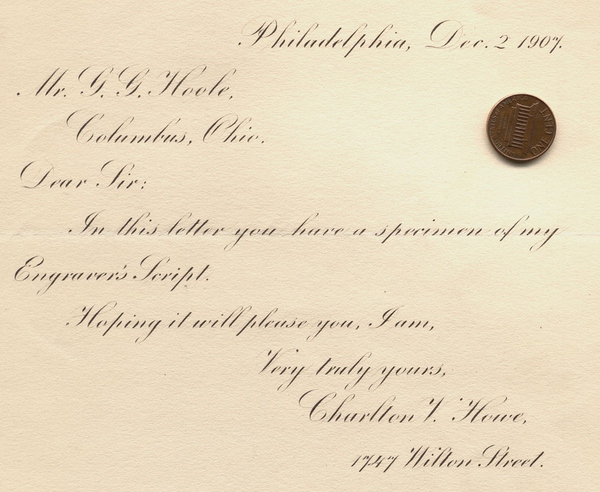 Philadelphia, Dec. 2 1907.
Mr. G. G. Hoole,
Columbus, Ohio.
Dear Sir:
In this letter you have a specimen of my
Engraver's Script.
Hoping it will please you, I am,
Very truly yours,
Charlton V. Howe,
1747 Wilton Street.